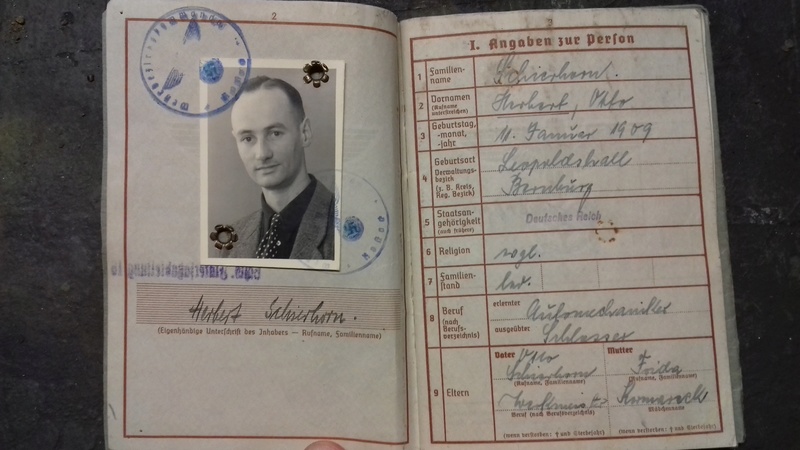 2
Herbert Schierhorn.
(Eigenhändige Unterschrift des Inhabers — Rufname, Familienname)
I. Angaben zur Person
1 Familien-
name
Schierhorn.
2 Vornamen
(Rufname
unterstreichen)
Herbert, Otto
3 Geburtstag,
-monat,
-jahr
11. Januar 1909
4 Geburtsort
Verwaltungs-
bezirk
(z. B. Kreis,
Reg. Bezirk)
Leopoldshall
Bernburg
5 Staatsan-
gehörigkeit
(auch frühere)
Deutsches Reich
6 Religion
evgl.
7 Familien-
stand
led.
8 Beruf
(nach
Berufs-
verzeichnis)
erlernter
Automechaniker
ausgeübter
Schlosser
9 Eltern
Vater Otto
Schierhorn
(Rufname, Familienname)
Werkmeister
Beruf (nach Berufsverzeichnis)
(wenn verstorben: † und Sterbejahr)
Mutter
Frida
(Rufname, Familienname)
Mädchenname
(wenn verstorben: † und Sterbejahr)